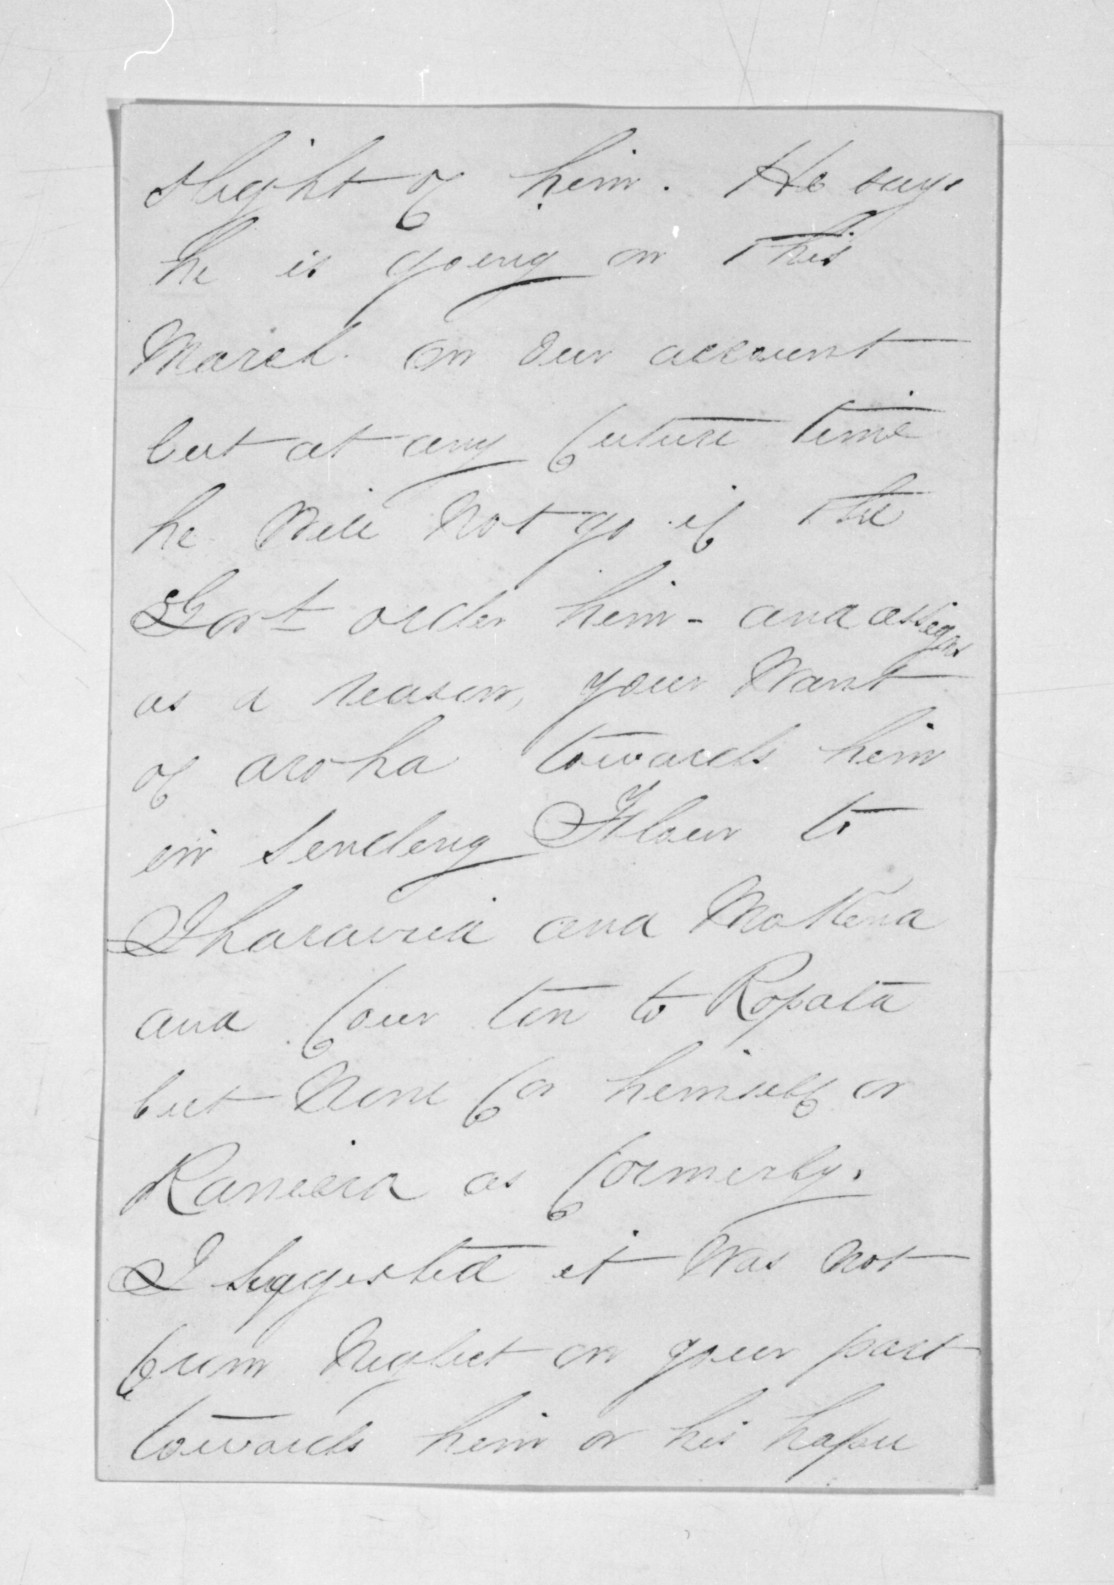 slight of him. He says
he is going on this
March on our account
but at any future time
he will not go if the
Govt order him - and assigns
as a reason, your want
of aroha towards him
in sending Flour to
Iharaira and Mokena
and four ton to Ropata
but none for himself or
Raniera as formerly.
I suggested it was not
from neglect on your part
towards him or his hapu